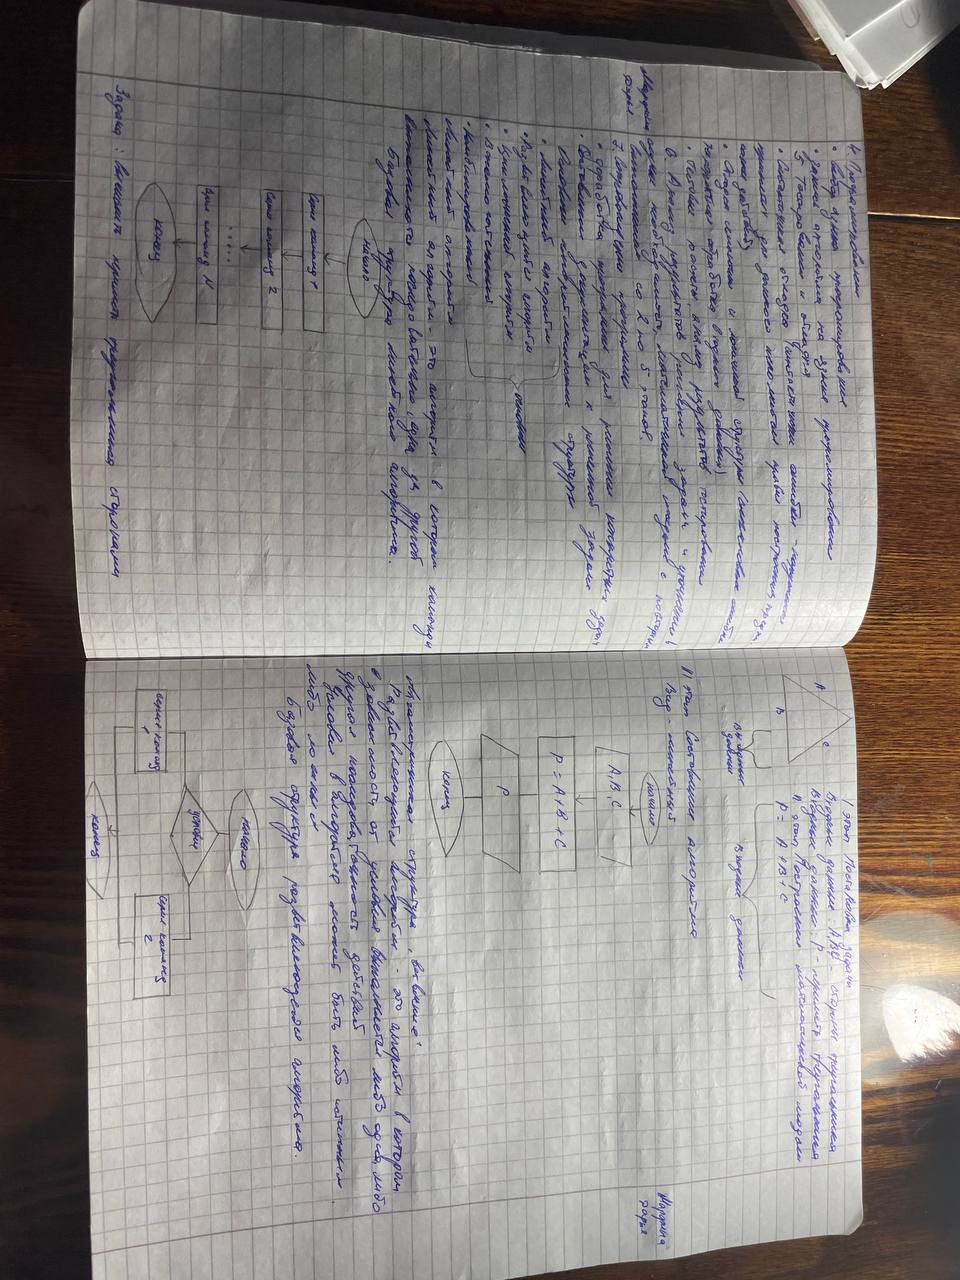 4. Программирование
• Выбор языка программирования
• Запись алгоритма на языке программирования
5. Тестирование и отладка
• Синтаксическая отладка
• Отладка семантики и логической структуры
• Тестовые расчеты и анализ результатов тестирования
6. Анализ результатов решения задачи и уточнение
в случае необходимости математической модели с повторным
выполнением со 2 по 5 этапов.
7. Сопровождение программы
• доработка программы для решения конкретных задач
• Составление документации к решенной задаче
Марфина
Дарья
• Линейный алгоритм
• Разветвляющийся алгоритм
• Циклический алгоритм
• Вспомогательный
• Комбинированный
основные
Линейный алгоритм
Линейный алгоритм - это алгоритм в котором команды
выполняются последовательно одна за другой
Базовая структура линейного алгоритма.
начало
Серия команд 1
Серия команд 2
....
Серия команд N
конец
Задача: Вычислить периметр треугольника сторонами
I этап Постановка задачи
Входные данные: A, B, C - стороны треугольника
данные: P - периметр треугольника
II этап Построение математической модели
P = A + B + C
A
B
C
Выходные
данные
Входные данные
III этап Составление алгоритма
Вид - линейный
начало
A, B, C
P = A + B + C
P
конец
Марфина
Дарья
Алгоритмическая структура
Разветвляющийся алгоритм - это алгоритм в котором
в зависимости от условия выполняется либо одна, либо
другая последовательность действий
Условия в алгоритме может быть либо истинным
либо ложным.
Базовая структура разветвляющегося алгоритма.
начало
условие
серия команд
1
серия команд
2
конец